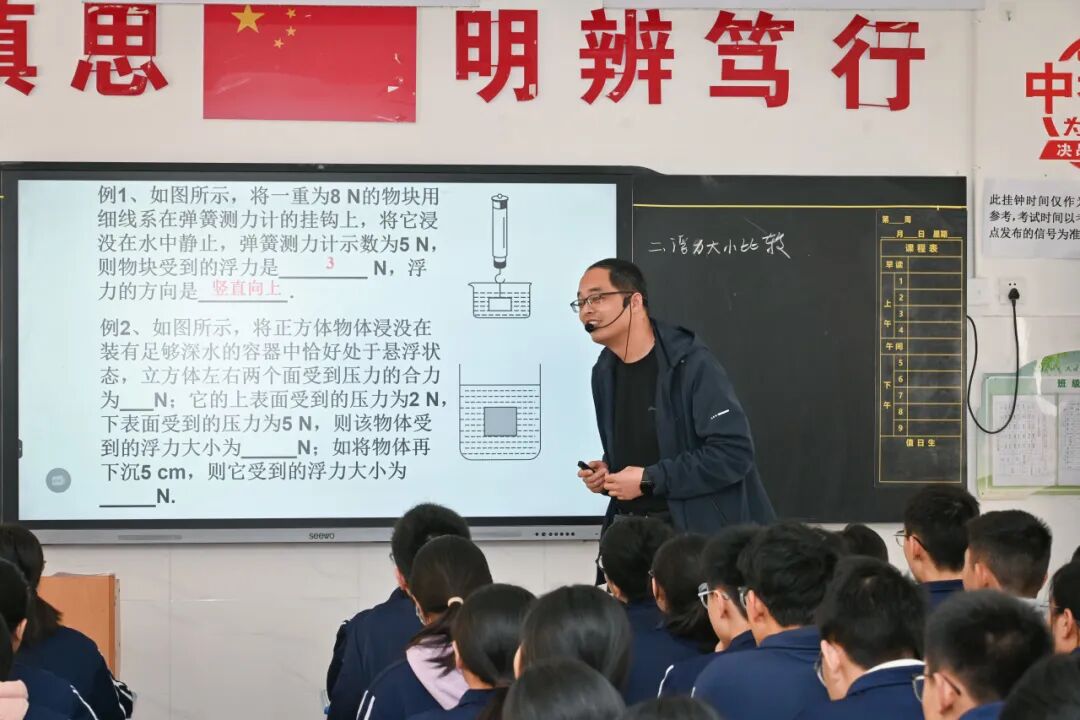 思
明辨笃行
例1、如图所示，将一重为8 N的物块用
细线系在弹簧测力计的挂钩上，将它浸
没在水中静止，弹簧测力计示数为5 N，
则物块受到的浮力是 3 N，浮
力的方向是 竖直向上 .
例2、如图所示，将正方体物体浸没在
装有足够深水的容器中恰好处于悬浮状
态，立方体左右两个面受到压力的合力
为___N；它的上表面受到的压力为2 N，
下表面受到的压力为5 N，则该物体受
到的浮力大小为_____N；如将物体再
下沉5 cm，则它受到的浮力大小为
_____N.
seewo
二.浮力大小比较
第 周
月 日 星期
课程表
早读
上午
1
2
3
4
午间
下午
5
6
7
8
9
值日生
中
为
决
此挂钟时间仅作
参考,考试时间以
点发布的信号为准
班级